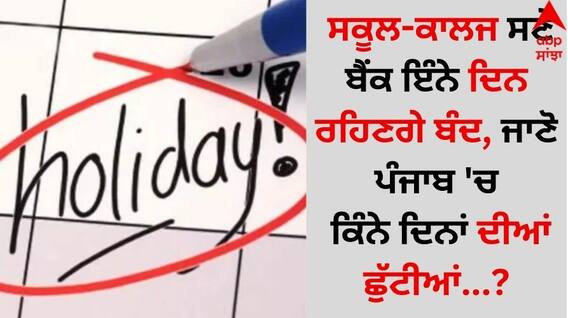 ਸਕੂਲ-ਕਾਲਜ ਸਣੇ
ਬੈਂਕ ਇੰਨੇ ਦਿਨ
ਰਹਿਣਗੇ ਬੰਦ, ਜਾਣੋ
ਪੰਜਾਬ 'ਚ
ਕਿੰਨੇ ਦਿਨਾਂ ਦੀਆਂ
ਛੁੱਟੀਆਂ...?
abp
ਸਾਂਝਾ
holiday!